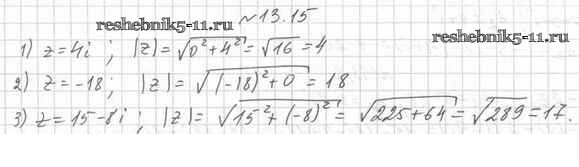 №13.15
reshebnik5-11.ru
reshebnik5-11.ru
1) z=4i ; |z|=√0²+4²=√16=4
2) z=-18; |z|=√(-18)²+0=18
3) z=15-8i; |z|=√15²+(-8)²=√225+64=√289=17.